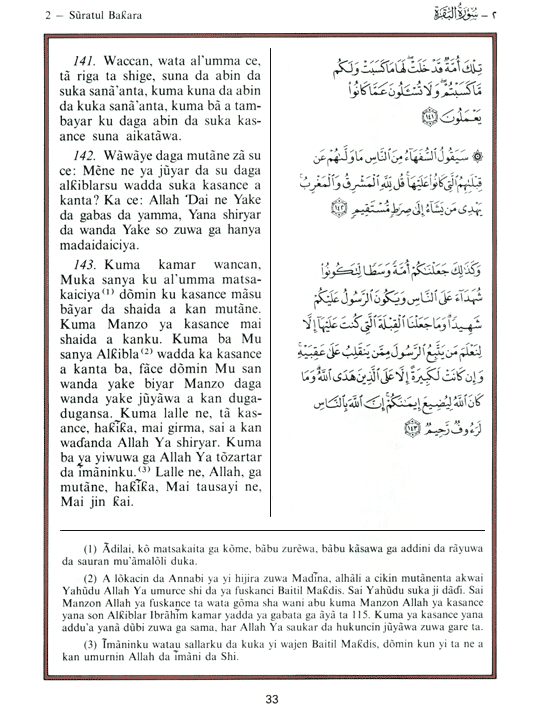 2 — Sũratul Baƙara
٢ — سُورَةُ البَقَرَةِ
141. Waccan, wata al'umma ce,
tã riga ta shige, suna da abin da
suka sanã'anta, kuma kuna da abin
da kuka sanã'anta, kuma bã a tam-
bayar ku daga abin da suka kas-
ance suna aikatãwa.
142. Wãwãye daga mutãne zã su
ce: Mẽne ne ya jũyar da su daga
alƙiblarsu wadda suka kasance a
kanta? Ka ce: Allah 'Dai ne Yake
da gabas da yamma, Yana shiryar
da wanda Yake so zuwa ga hanya
madaidaiciya.
143. Kuma kamar wancan,
Muka sanya ku al'umma matsa-
kaiciya(1) dõmin ku kasance mãsu
bãyar da shaida a kan mutãne.
Kuma Manzo ya kasance mai
shaida a kanku. Kuma ba Mu
sanya Alƙibla(2) wadda ka kasance
a kanta ba, fãce dõmin Mu san
wanda yake biyar Manzo daga
wanda yake jũyãwa a kan duga-
dugansa. Kuma lalle ne, tã kas-
ance, haƙĩƙa, mai girma, sai a kan
waɗanda Allah Ya shiryar. Kuma
ba ya yiwuwa ga Allah Ya tõzartar
da ĩmãninku.(3) Lalle ne, Allah, ga
mutãne, haƙĩƙa, Mai tausayi ne,
Mai jin ƙai.
تِلْكَ أُمَّةٌ قَدْ خَلَتْ لَهَا مَا كَسَبَتْ وَلَكُم
مَّا كَسَبْتُمْ وَلَا تُسْـَٔلُونَ عَمَّا كَانُوا۟
يَعْمَلُونَ ١٤١
۞ سَيَقُولُ ٱلسُّفَهَآءُ مِنَ ٱلنَّاسِ مَا وَلَّىٰهُمْ عَن
قِبْلَتِهِمُ ٱلَّتِى كَانُوا۟ عَلَيْهَا قُل لِّلَّهِ ٱلْمَشْرِقُ وَٱلْمَغْرِبُ
يَهْدِى مَن يَشَآءُ إِلَىٰ صِرَٰطٍ مُّسْتَقِيمٍ ١٤٢
وَكَذَٰلِكَ جَعَلْنَٰكُمْ أُمَّةً وَسَطًا لِّتَكُونُوا۟
شُهَدَآءَ عَلَى ٱلنَّاسِ وَيَكُونَ ٱلرَّسُولُ عَلَيْكُمْ
شَهِيدًا وَمَا جَعَلْنَا ٱلْقِبْلَةَ ٱلَّتِى كُنتَ عَلَيْهَآ إِلَّا
لِنَعْلَمَ مَن يَتَّبِعُ ٱلرَّسُولَ مِمَّن يَنقَلِبُ عَلَىٰ عَقِبَيْهِ
وَإِن كَانَتْ لَكَبِيرَةً إِلَّا عَلَى ٱلَّذِينَ هَدَى ٱللَّهُ وَمَا
كَانَ ٱللَّهُ لِيُضِيعَ إِيمَٰنَكُمْ إِنَّ ٱللَّهَ بِٱلنَّاسِ
لَرَءُوفٌ رَّحِيمٌ ١٤٣
(1) Ãdilai, kõ matsakaita ga kõme, bãbu zurẽwa, bãbu kãsawa ga addini da rãyuwa
da sauran mu'ãmalõli duka.
(2) A lõkacin da Annabi ya yi hijira zuwa Madĩna, alhãli a cikin mutãnenta akwai
Yahũdu Allah Ya umurce shi da ya fuskanci Baitil Maƙdis. Sai Yahũdu suka ji dãɗi. Sai
Manzon Allah ya fuskance ta wata gõma sha wani abu kuma Manzon Allah ya kasance
yana son Alƙiblar Ibrãhĩm kamar yadda ya gabata ga ãyã ta 115. Kuma ya kasance yana
addu'a yanã dũbi zuwa ga sama, har Allah Ya saukar da hukuncin jũyãwa zuwa gare ta.
(3) Ĩmãninku watau sallarku da kuka yi wajen Baitil Maƙdis, dõmin kun yi ta ne a
kan umurnin Allah da ĩmãni da Shi.
33